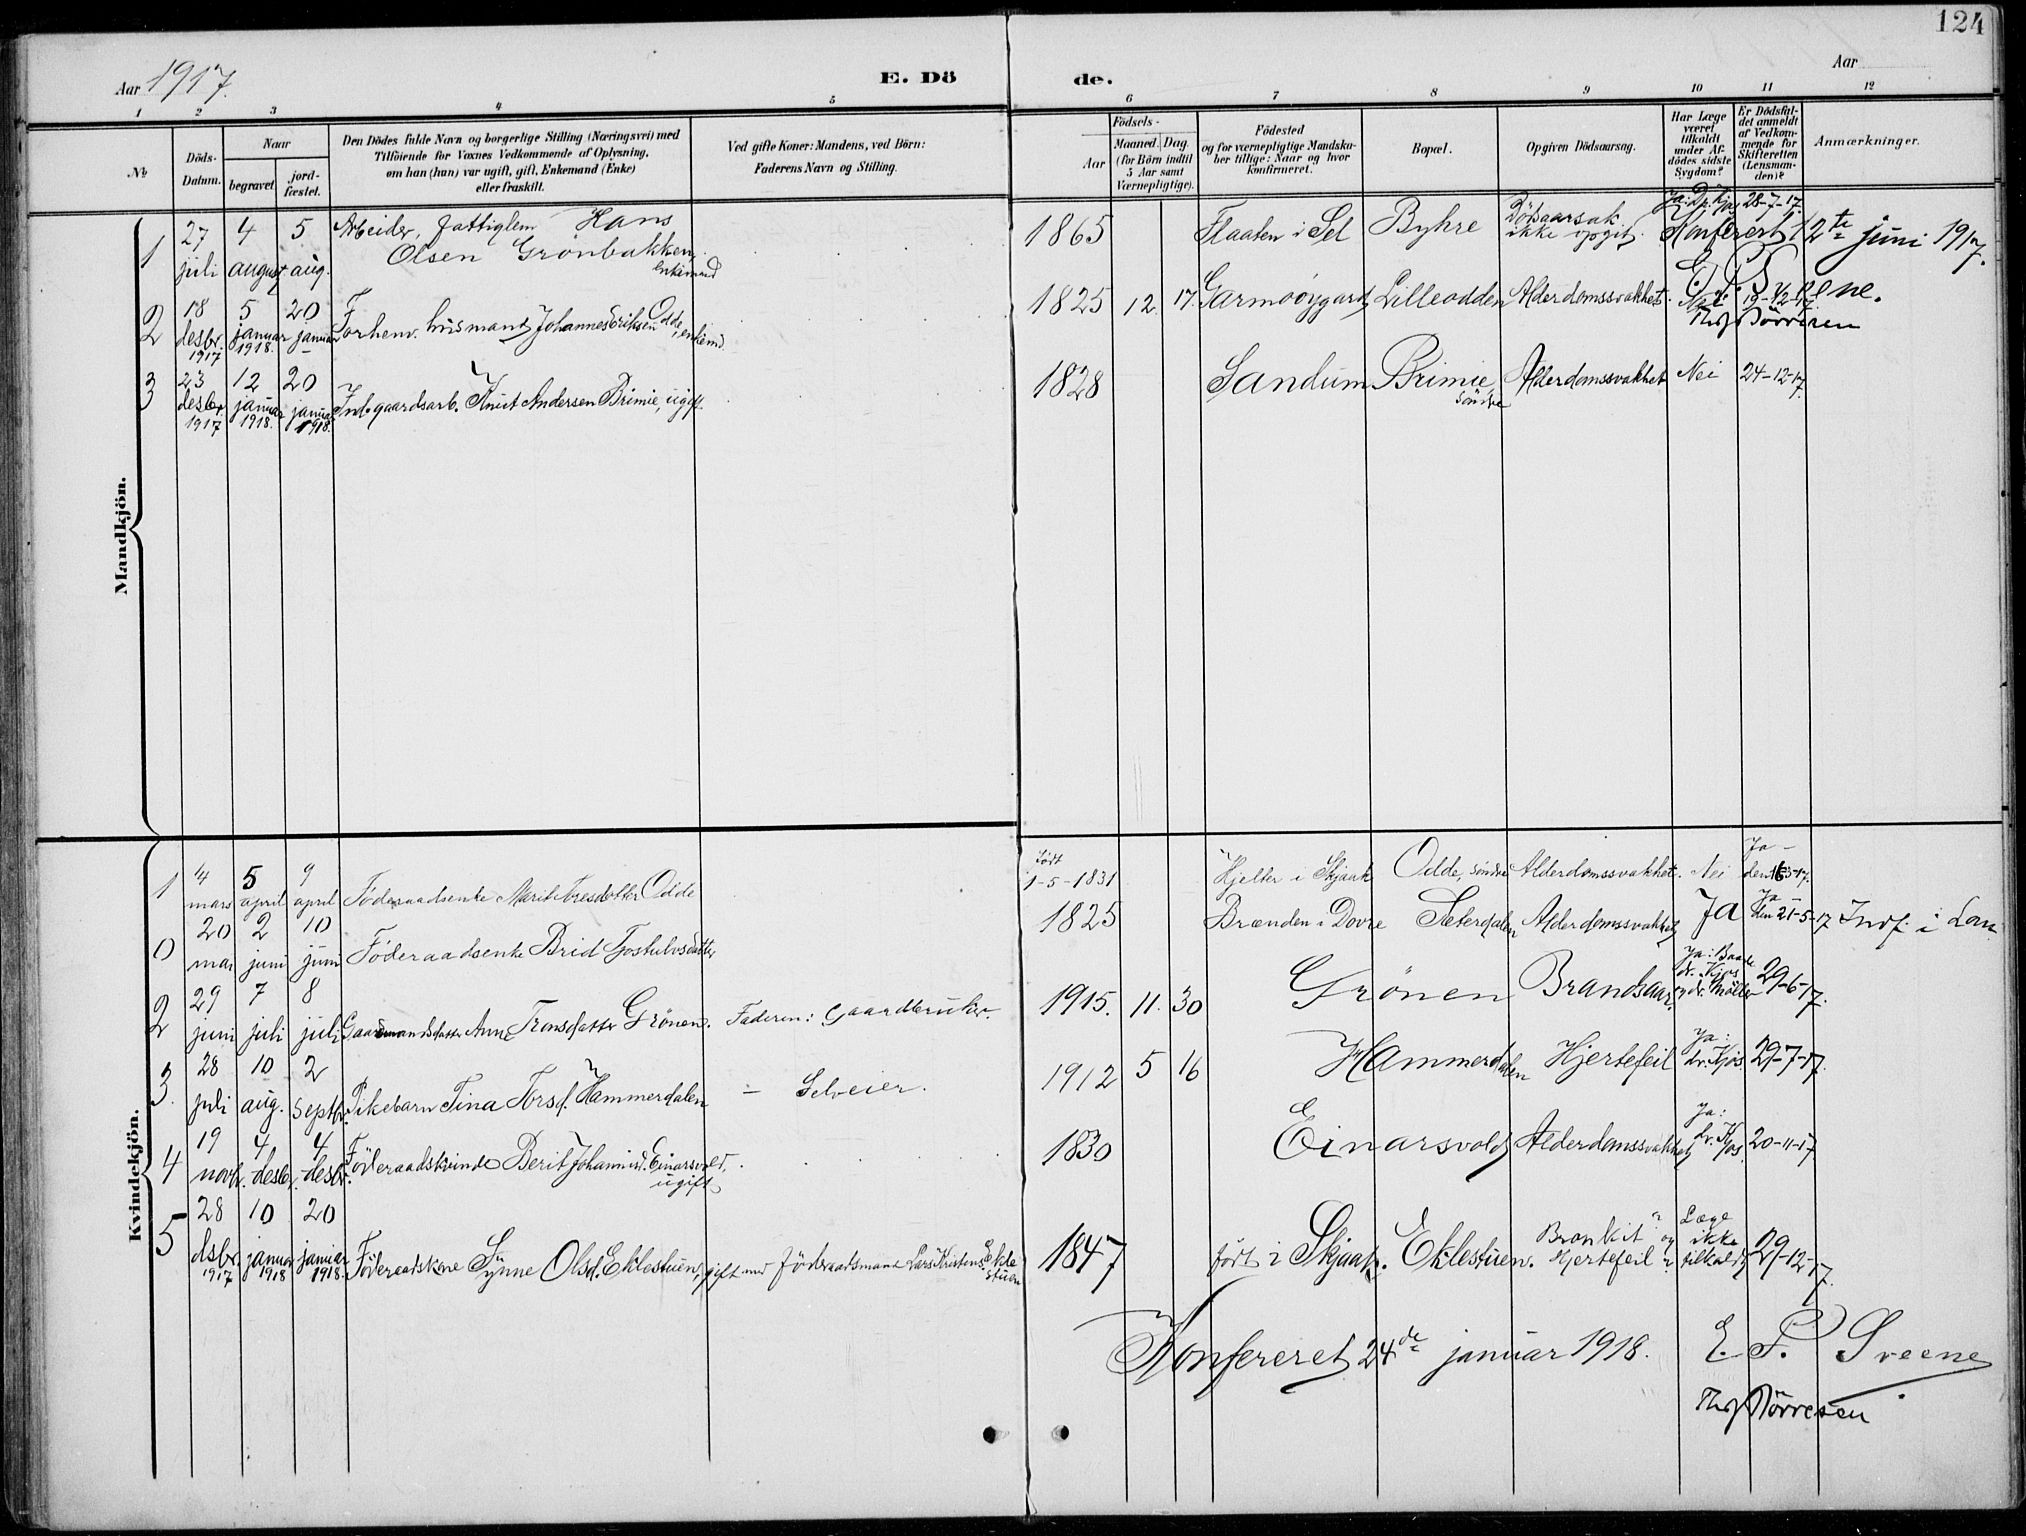 124
Aar 1917.
E. Dö de.
Aar
1 2 3 4 5 6 7 8 9 10 11 12
No
Döds-Datum.
Naar
begravet
jord-fæstet.
Den Dödes fulde Navn og borgerlige Stilling (Næringsvei) med
Tilföiende for Voxnes Vedkommende af Oplysning,
om han (hun) var ugift, gift, Enkemand (Enke)
eller fraskilt.
Ved gifte Koner: Mandens, ved Börn:
Faderens Navn og Stilling.
Födsels-
Aar
Maaned. Dag.
(for Börn indtil
5 Aar samt
Værnepligtige).
Födested
og for værnepligtige Mandska-
ber tillige: Naar og hvor
konfirmeret.
Bopæl.
Opgiven Dödsaarsag.
Har Læge
været
tilkaldt
under Af-
dödes sidste
Sygdom?
Er Dödsfal-
det anmeldt
af Vedkom-
mende for
Skifteretten
(Lensman-
den)?
Anmærkninger.
Mandkjön.
1 27 juli 4 august 5 aug. Arbeider, fattiglem Hans
Olsen Grönbakken,
enkemand
1865 Flaaten i Sel Byhre Dödsaarsak
ikke opgit. 28-7-17.
Konferert 12te juni 1917.
2 18 desbr. 1917 5 januar 1918. 20 januar Forhenv. husmand Johannes Eriksen Odde, enkemd.
1825 12. 17. Garmoöygard Lilleodden Alderdomssvakhet. Nei. 19-12-17
Thv Börresen
3 23 desbr. 1917 12 januar 1918. 20 januar 1918. Ind. gaardsarb. Knut Andersen Brimie, ugift.
1828 Sandum Brimie, söndre Alderdomssvakhet Nei 24-12-17.
Kvindekjön.
1 4 mars 5 april 9 april Föderaadsenke Marit Toresdotter Odde
Födt 1-5-1831 Hjelter i Skjaak Odde, söndre Alderdomssvakhet. Nei Ja -
0 20 mai 2 juni 10 juni Föderaadsenke Brid Tjostulvsdatter
1825 Brænden i Dovre Sæterdalen Alderdomssvakhet Ja Ja den 21-5-17 Indf. i Lom
2 29 juni 7 juli 8 juli Gaardmandsdatter Anne Tronsdatter Grönen. Faderen: Gaardbruker.
1915. 11. 30 Grönen Brandsaar. Ja: Baade
dr. Kjos
og dr. Möller 29-6-17.
3. 28 juli 10 aug. 2 septbr. Pikebarn Tina Torsd. Hammerdalen — Selveier.
1912 5 16 Hammerdalen Hjertefeil Ja:
dr. Kjos. 29-7-17.
4 19 novbr. 4 desbr. 4 desbr. Föderaadskvinde Berit Johannisd. Einarsvold,
ugift
1830 Einarsvold Alderdomssvakhet Ja:
dr. Kjos. 20-11-17
5 28 dsbr. 1917 10 januar 1918 20 januar 1918. Föderaadskone Synne Olsd. Eklestuen, gift med föderaadsmand Lars Kristens. Eklestuen
1847 födt i Skjaak. Eklestuen. Bronkit? og
Hjertefeil? Læge
ikke
tilkaldt 29-12-17.
Konfereret 24de januar 1918. E. P. Sveene
Thv Börresen